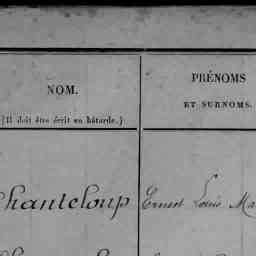 NOM.
(Il doit être écrit en bâtarde.)
PRÉNOMS
ET SURNOMS.
Chanteloup Ernest Louis Ma